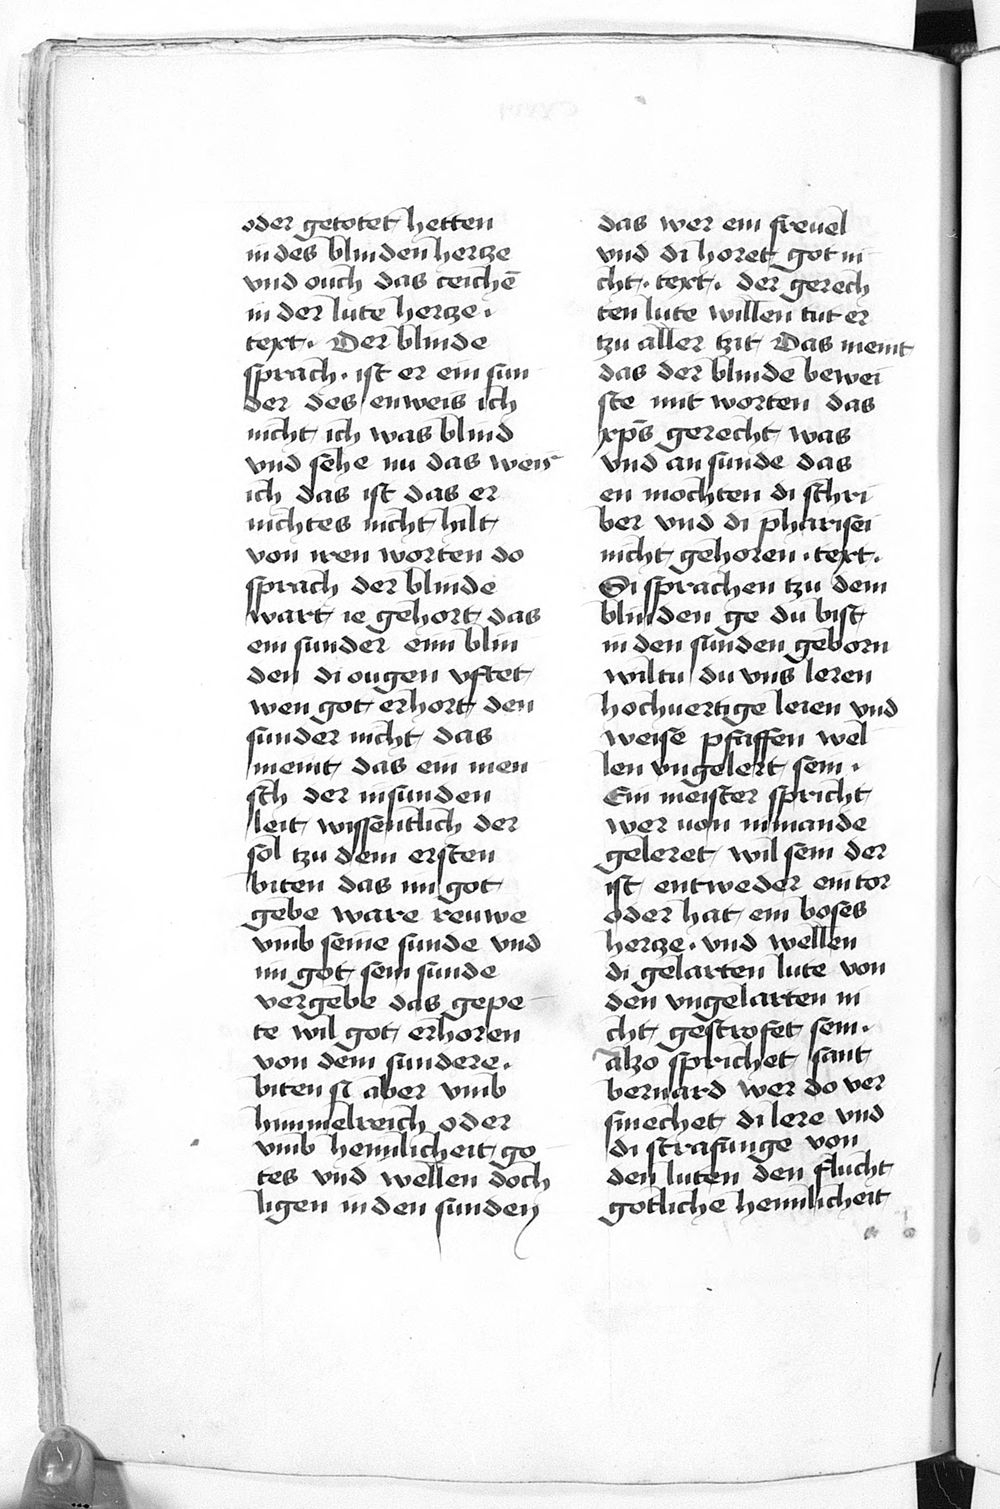 oder getotet hetten
in des blinden hercze
vnd ouch das ceichē
in der lute hercze .
text . Der blinde
sprach . ist er ein sun
der des enweis ich
nicht ich was blind
vnd sehe nu das weis
ich das ist das er
nichtes nicht hilt
von iren worten do
sprach der blinde
wart ie gehort das
ein sunder einn blin
den di ougen vftet
wen got erhort den
sunder nicht das
meint das ein men
sch der in sunden
leit wissentlich der
sol tzu dem ersten
biten das im got
gebe ware reuwe
vmb seine sunde vnd
im got sein sunde
vergebe das gepe
te wil got erhoren
von dem sundere .
biten si aber vmb
himmelreich oder
vmb heimlicheit go
tes vnd wellen doch
ligen in den sunden
das wer ein freuel
vnd di horet got ni
cht . text . der gerech
ten lute willen tut er
tzu aller tzit Das meint
das der blinde bewei
ste mit worten das
xp̄s gerecht was
vnd an sunde das
en mochten di schri
ber vnd di pharisei
nicht gehoren . text .
Si sprachen tzu dem
blinden ge du bist
in den sunden geborn
wiltu du vns leren
hochuertige leien vnd
weise pfaffen wel
len vngelert sein .
Ein meister spricht
wer uon nimande
geleret wil sein der
ist entweder ein tor
oder hat ein boses
hercze . vnd wellen
di gelarten lute von
den vngelarten ni
cht gestrofet sein .
alzo sprichet sant
bernard wer do ver
smechet di lere vnd
di strafunge von
den luten den flucht
gotliche heimlicheit